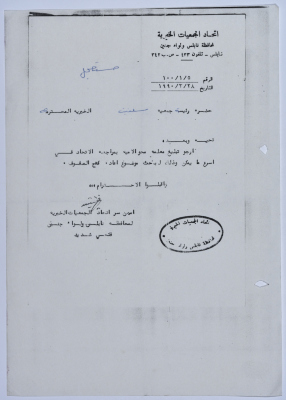 اتحاد الجمعيات الخيرية
محافظة نابلس ولواء جنين
نابلس - تلفون ٤٢٣ - ص.ب ٣٤٢
الرقم ١٠٠/١/٥
التاريخ ١٩٩٠/٢/٢٨
حضرة رئيسة جمعية الخيرية المحترمة
تحية وبعد،
ارجو تبليغ معلمة محو الامية بمراجعة الاتحاد في
اسرع ما يمكن وذلك لبحث موضوع
واقبلوا الاحترام ،،،
امين سر اتحاد الجمعيات الخيرية
لمحافظة نابلس ولواء جنين
اتحاد الجمعيات الخيرية
محافظة نابلس ولواء جنين